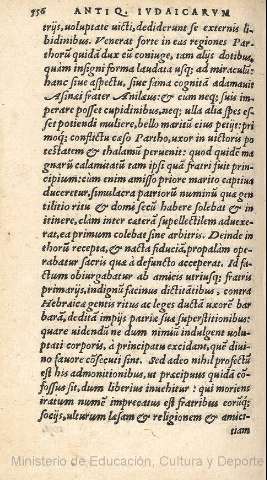 556 ANTIQ. IVDAICARVM
trijs, voluptate victi, dediderunt se externis li-
bidinibus. Venerat forte in eas regiones Par-
thorū quidā dux cū coniuge, tam alijs dotibus,
quàm insigni forma laudata usq; ad miraculū:
hanc siue aspectu, siue fama cognitā adamauit
Asinæi frater Anilæus: & cum neq; suis im-
perare posset cupidinibus, neq; ulla alia spes es-
set potiendi muliere, bello maritū eius petijt: pri
moq; conflictu cæso Partho, uxor in uictoris po
testatem & thalamū peruenit: quod quidē ma
gnarū calamitatū tam ipsi quā fratri fuit prin-
cipium: cùm enim amisso priore marito captiua
duceretur, simulacra patriorū numinū quæ gen
tilitio ritu & domi secū habere solebat & in
itinere, clam inter cætera supellectilem aduexe-
rat, ea primum colebat sine arbitris. Deinde in
thorū recepta, & nacta fiduciā, propalàm ope-
rabatur sacris quæ à defuncto acceperat. Id fa-
ctum obiurgabatur ab amicis utriusq; fratris
primarijs, indignū facinus dictitātibus, contra
Hebraicæ gentis ritus ac leges ductā uxorē bar
barā, deditā impijs patriæ suæ superstitionibus:
quare uidendū ne dum nimiū indulgent uolu-
ptati corporis, à principatu excidant, quē diui-
no fauore cōsecuti sint. Sed adeo nihil profectū
est his admonitionibus, ut præcipuus quidā cō-
fossus sit, dum liberius inuehitur: qui moriens
iratum numē imprecatus est fratribus eorūq;
socijs, ulturum læsam & religionem & amici-
tiam
Ministerio de Educación, Cultura y Deporte